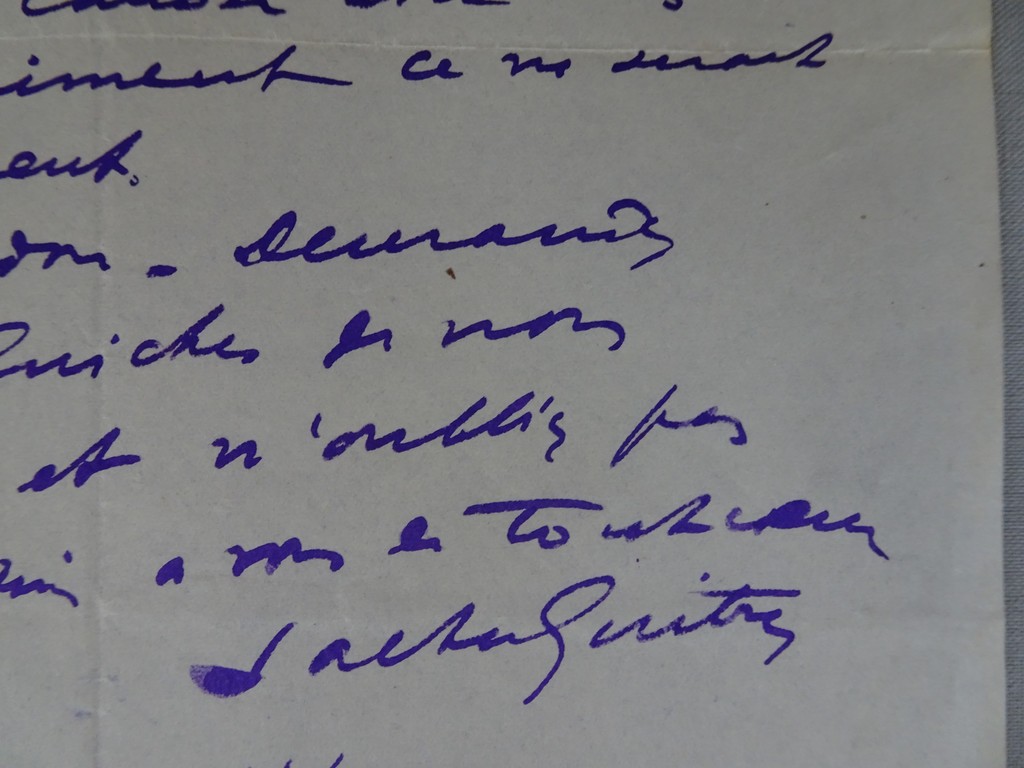 iment ce ne serait
ent.
don - Demandez
Guiches de nous
et n'oubliez pas
a vous de tout cœur
Sacha Guitry